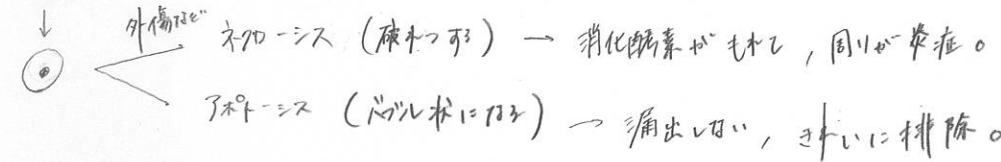 外傷など
ネクローシス (破れつする) → 消化酵素がもれて, 周りが炎症。
アポトーシス (バブル状になる) → 漏出しない, きれいに排除。